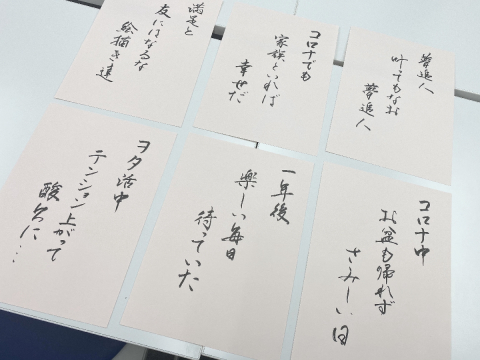 夢追人
叶ってもなお
夢追人
コロナでも
家族といれば
幸せだ
満足と
友にはなるな
絵描き達
コロナ中
お盆も帰れず
さみしい日
一年後
楽しい毎日
待っていた
ヲタ活中
テンション上がって
酸欠に…